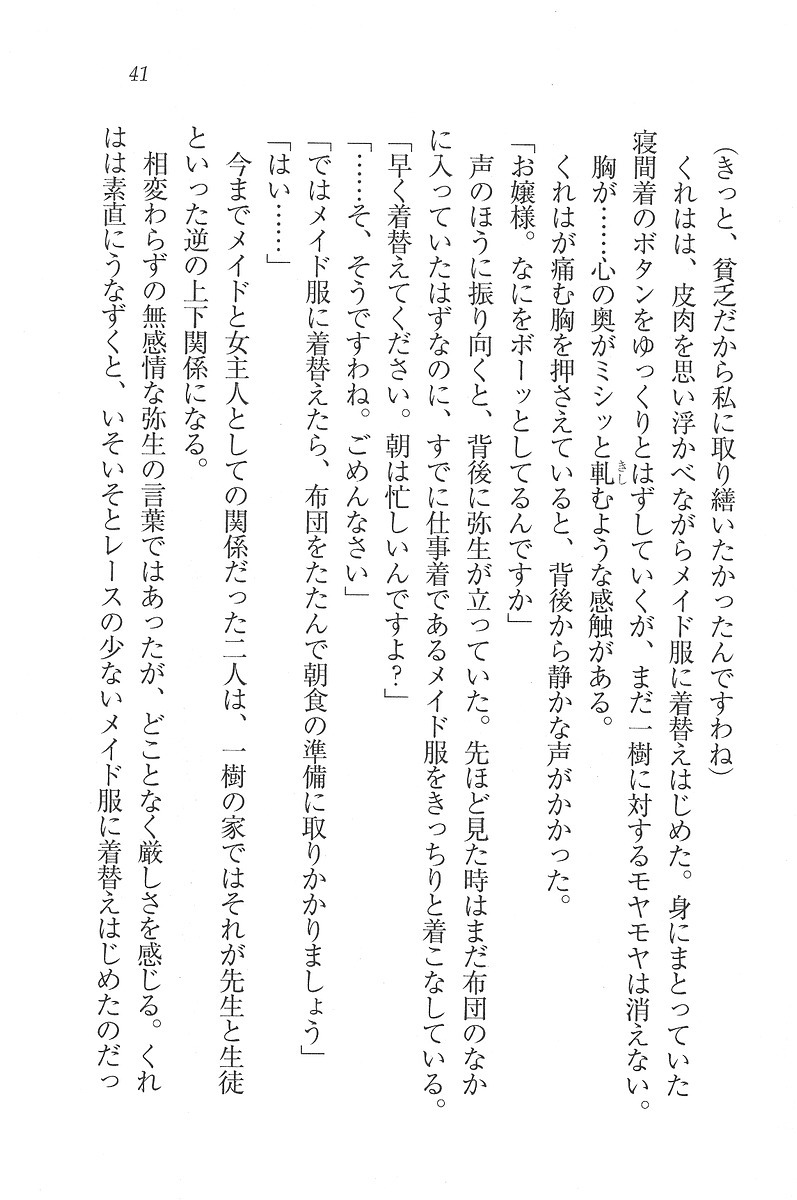 41
(きっと、貧乏だから私に取り繕いたかったんですわね)
くれはは、皮肉を思い浮かべながらメイド服に着替えはじめた。身にまとっていた
寝間着のボタンをゆっくりとはずしていくが、まだ一樹に対するモヤモヤは消えない。
胸が……心の奥がミシッと軋むような感触がある。
きし
くれはが痛む胸を押さえていると、背後から静かな声がかかった。
「お嬢様。なにをボーッとしてるんですか」
声のほうに振り向くと、背後に弥生が立っていた。先ほど見た時はまだ布団のなか
に入っていたはずなのに、すでに仕事着であるメイド服をきっちりと着こなしている。
「早く着替えてください。朝は忙しいんですよ?」
「……そ、そうですわね。ごめんなさい」
「ではメイド服に着替えたら、布団をたたんで朝食の準備に取りかかりましょう」
「はい……」
今までメイドと女主人としての関係だった二人は、一樹の家ではそれが先生と生徒
といった逆の上下関係になる。
相変わらずの無感情な弥生の言葉ではあったが、どことなく厳しさを感じる。くれ
はは素直にうなずくと、いそいそとレースの少ないメイド服に着替えはじめたのだっ